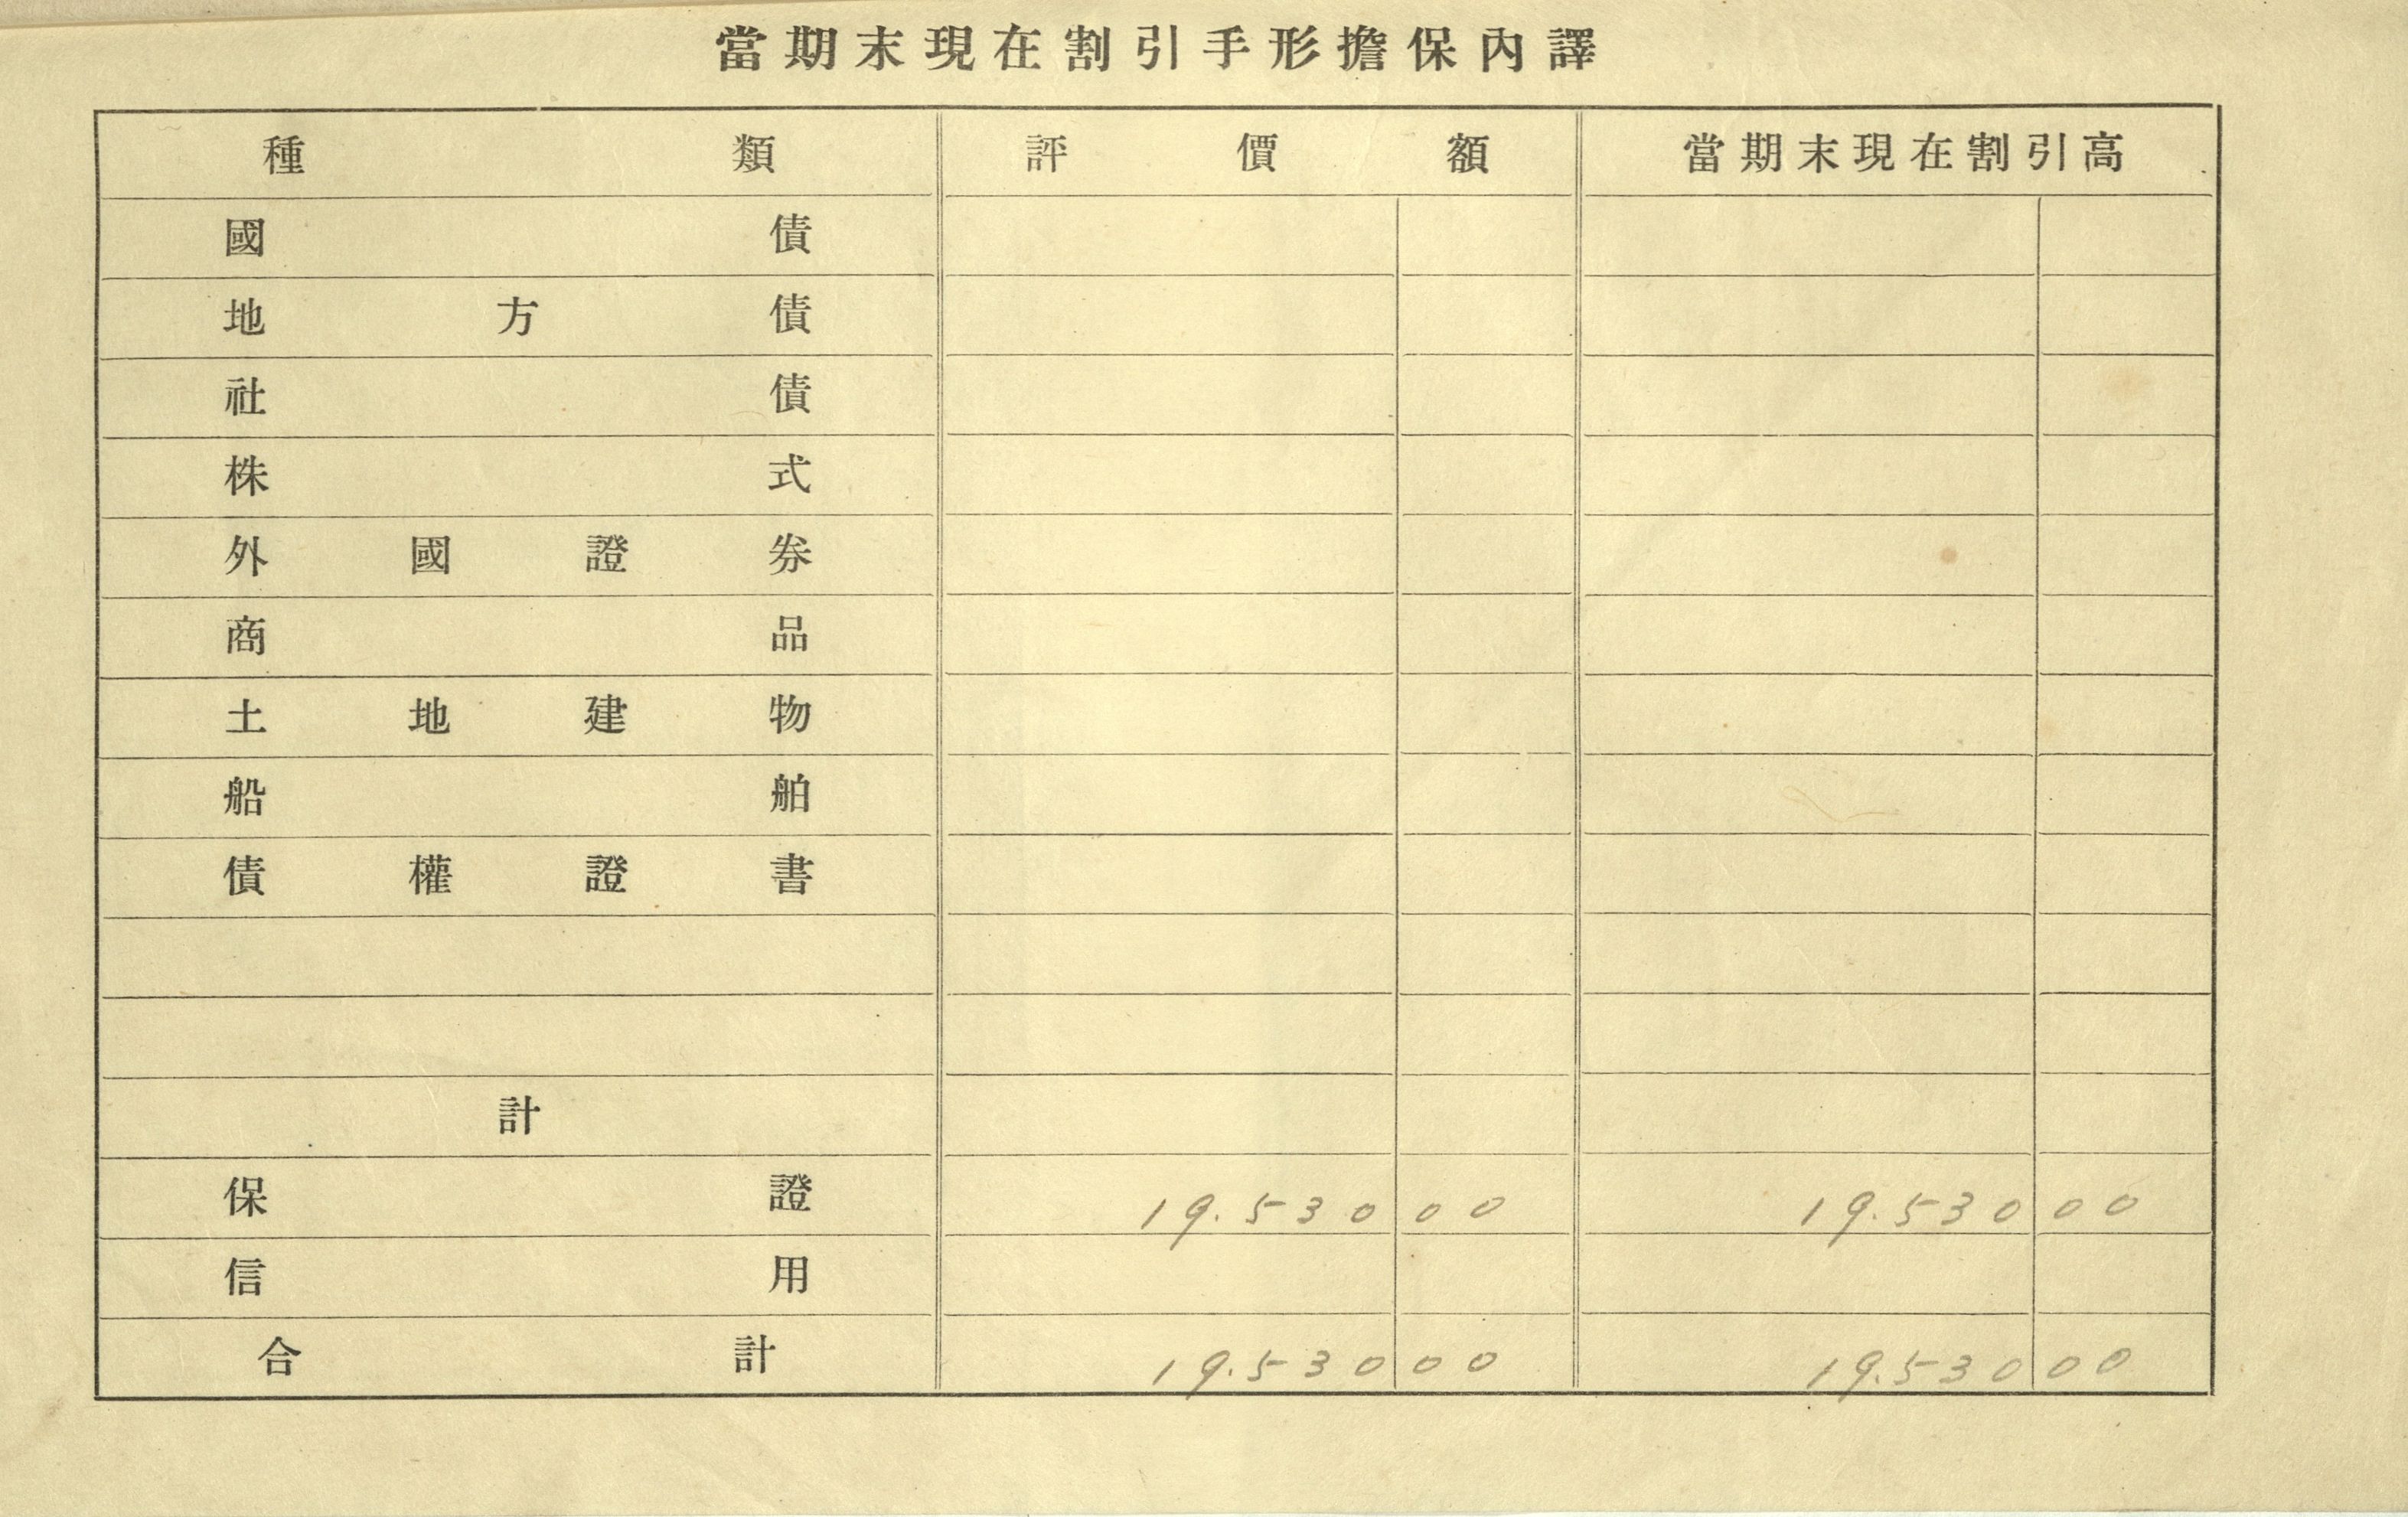 當期末現在割引手形擔保內譯
種類 評價額 當期末現在割引高
國債
地方債
社債
株式
外國證券
商品
土地建物
船舶
債權證書
計
保證 19.530 00 19.530 00
信用
合計 19.530 00 19.530 00